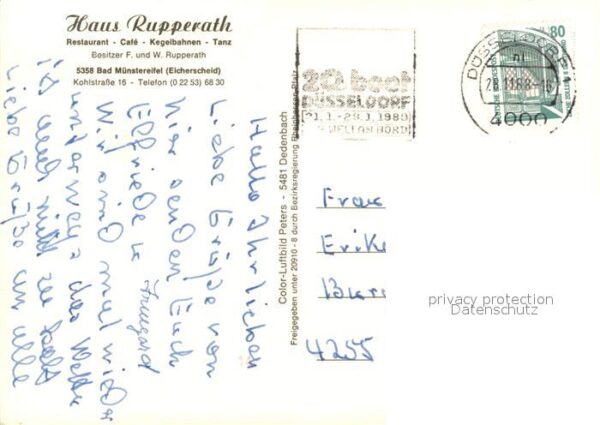 Haus Rupperath
Restaurant - Café - Kegelbahnen - Tanz
Besitzer F. und W. Rupperath
5358 Bad Münstereifel (Eicherscheid)
Kohlstraße 16 - Telefon (0 22 53) 68 30
boot
DÜSSELDORF
21.1.-29.1.1989
DÜSSELDORF
4000
80
Hallo Ihr lieben
Liebe Grüße von
hier senden Euch
Elfriede u. Irmgard
Wir sind mal wieder
unterwegs das Wetter
ist auch nicht zu kalt
Liebe Grüße an alle
Color-Luftbild Peters - 5481 Dedenbach
Freigegeben unter 20910 - 8 durch Bezirksregierung Rheinhessen-Pfalz
Frau
Erike
4255
privacy protection
Datenschutz